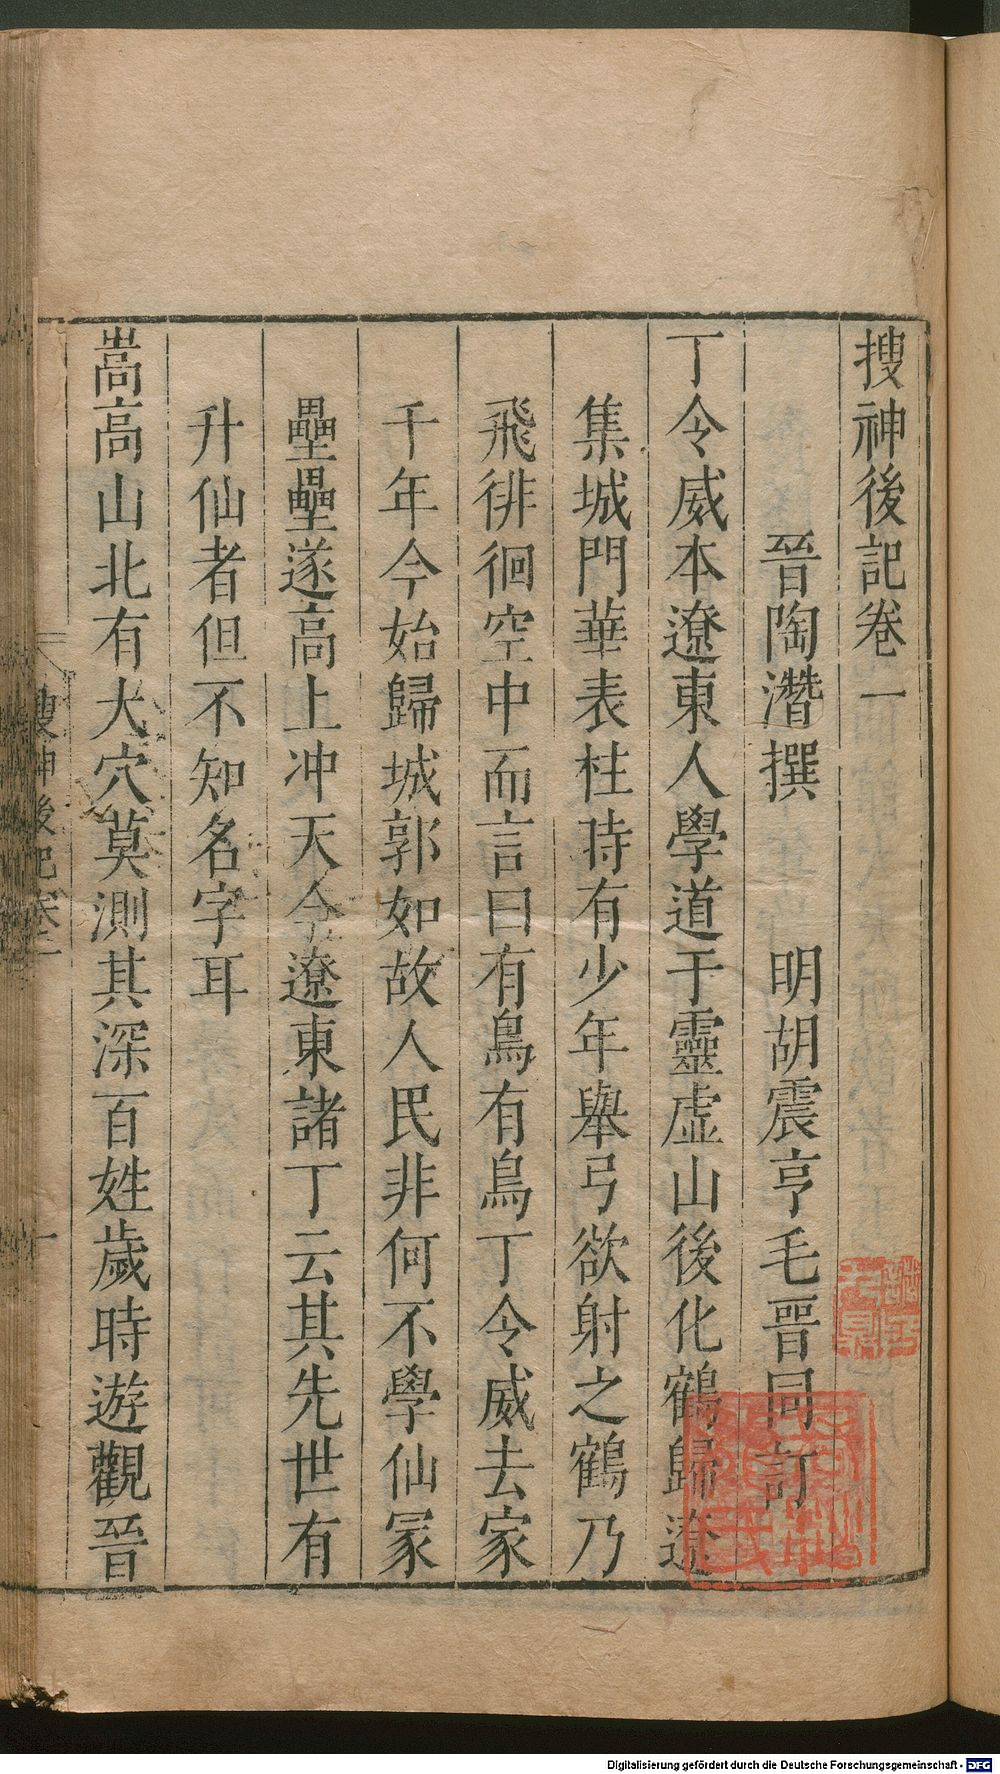 搜神後記卷一
晉陶潛撰 明胡震亨毛晉同訂
丁令威本遼東人學道于靈虛山後化鶴歸遼
集城門華表柱時有少年舉弓欲射之鶴乃
飛徘徊空中而言曰有鳥有鳥丁令威去家
千年今始歸城郭如故人民非何不學仙冢
壘壘遂高上冲天今遼東諸丁云其先世有
升仙者但不知名字耳
嵩高山北有大穴莫測其深百姓歲時遊觀晉
搜神後記卷一
一
Digitalisierung gefördert durch die Deutsche Forschungsgemeinschaft - DFG